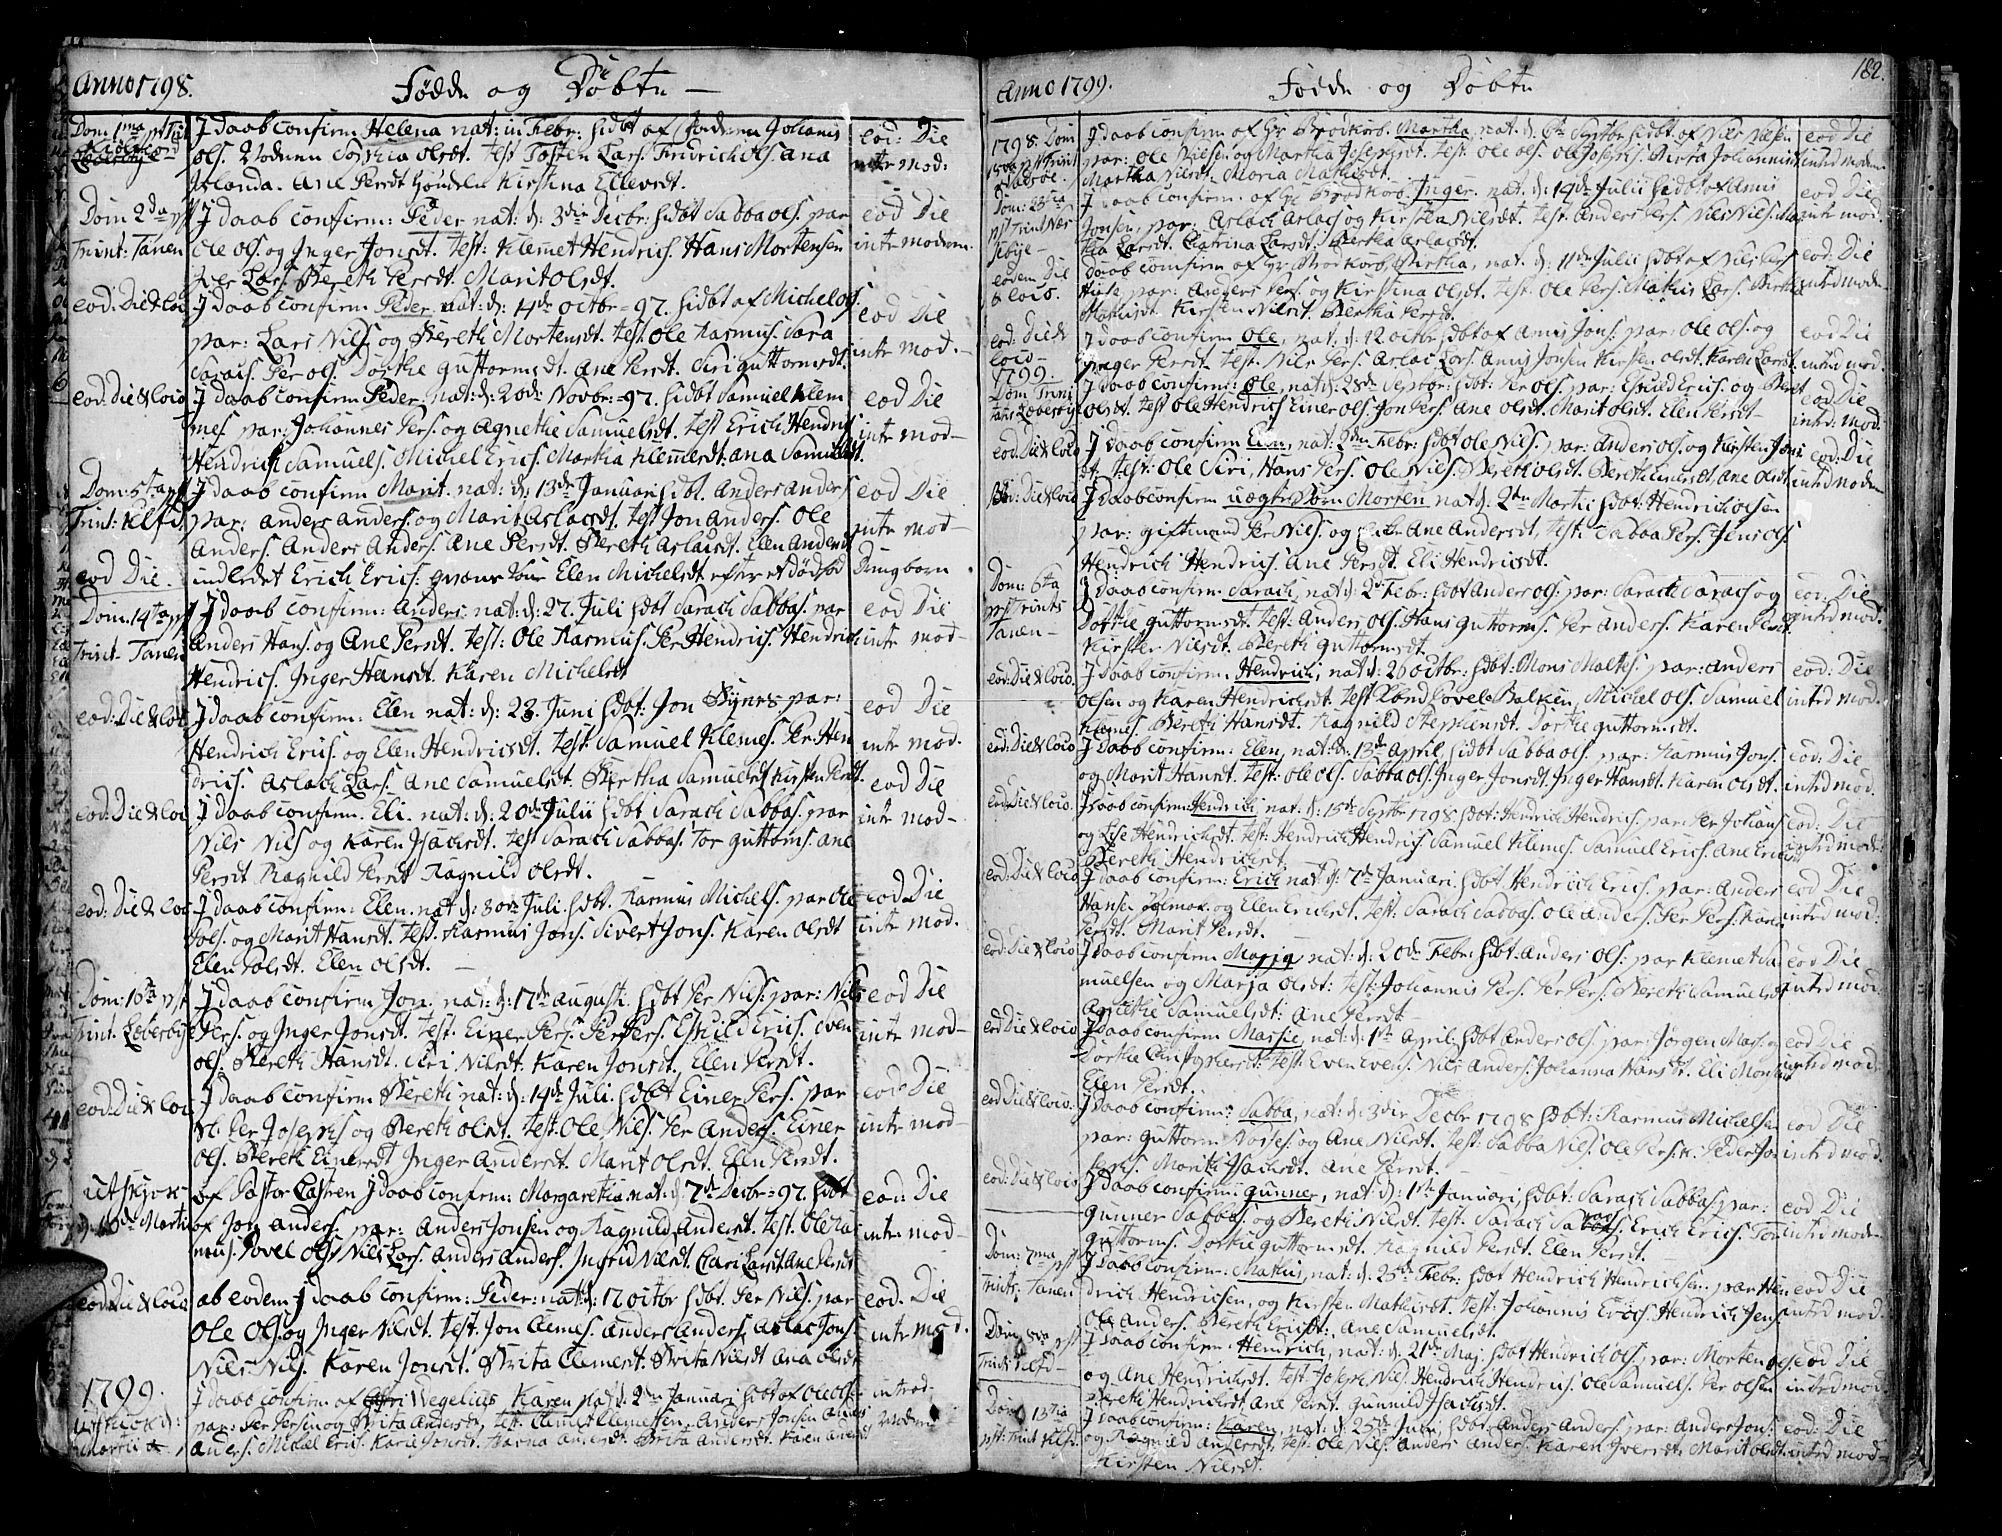 Anno 1798. Fødde og Døbte —
Dom 1ma pst Trint
Kiølefiord
J daab confirm Helena nat: in Febr: hdbt af Johanis
ols. Moderen Sophia olsdt. test Tosten Lars. Fridrich ols. Ana
Jolanda. Ane Persdt Kirstina Ellevsdt.
eod: Die
intr mod:
Dom 2da pst
Trint: Tanen
J daab confirm: Peder nat: d: 3die Decbr: hdbt Sabba ols. par
Ole ols. og Inger Jonsdt. test: Klemet Hendrics. Hans Mortensen
Iver Lars. Bereth Persdt. Marit olsdt.
eod Die
intr modrem.
eod: Die & loco
J daab confirm Peder nat: d: 4de octbr = 97. hdbt af Michel ols.
par: Lars Nils. og Bereth Mortensdt. test Ole Rasmus. Sara
Saracs. Per ols Dorthe Guttormsdt. Ane Persdt. Siri guttormsdt.
eod Die
intr mod. —
eod: Die & loco
J daab confirm Peder nat: d: 20de Novbr: =97. hdbt Samuel Klem
mes par: Johannes Pers. og Agnethe Samuelsdt. test Erich Hendrics
Hendrich Samuels. Michel Erics. Martha Klemesdt: ana Samuelsdt.
eod Die
intr mod —
Dom: 5ta pst
Trint: Klfd.
J daab confirm Marit. nat: d: 13de Januari hdbt. Anders Anders
par: anders anders. og Marit Aslacsdt. test Jon Anders. Ole
Anders. Anders Anders. Ane Persdt. Bereth Aslacsdt. Elen Andersdt
eod Die
intr mod —
eod Die.
indledet Erich Erics: qvæns Elen Michelsdt efter et dødfød
Dreng barn
Dom: 14ta pst
Trint Tanen
J daab confirm: Anders nat: d: 27. Juli hdbt Sarach Sabbas. par
Anders Hans. og Ane Persdt. test: Ole Rasmus. Per Hendrics. Hendrich
Hendrics. Inger Hansdt. Karen Michelsdt
eod Die
intr mod —
eod: Die & loco
J daab confirm: Elen nat: d: 23. Juni hdbt: Jon par:
Hendrich Erics. og Elen Hendricsdt. test: Samuel Klemes. Per Hen
drics. Aslach Lars. Ane Samuelsdt. Bertha Samuelsdt Kirsten Persdt.
eod Die
intr mod.
eod: Die & loco
J daab confirm. Eli. nat: d: 20de Julii hdbt Sarach Sabbas. par
Nils Nils og Karen Isachsdt. test Sarach Sabbas. Tor guttorms. ane
Persdt Ragnild Persdt Ragnild olsdt.
eod Die
intr mod —
eod: Die & loco
J daab confirm: Elen nat d: 30de Juli. hdbt. Rasmus Michels. par Ole
ols. og Marit Hansdt. test Rasmus Jons. Sivert Jons. Karen olsdt
Elen olsdt. Elen olsdt. —
eod Die
intr mod.
Dom: 16ta pst
Trint. Lebesbye
J daab confirm Jon. nat: d: 17de augusti. hdbt Per Nils: par: Nils
Pers. og Inger Jonsdt. test: Einer Pers. Per Pers. Eskild Erics. even
ols. Bereth Hansdt. Siri Nilsdt. Karen Jonsdt. Elen Persdt.
eod Die
intr mod —
eod: Die & loco
J daab confirm Bereth nat: d: 14de Juli. hdbt Einer Pers. par
Per Josephs og Bereth olsdt. test. Ole Nils. Per Anders. Einer
ols. Bereth Einersdt Inger Andersdt. Marit olsdt. Elen Persdt.
eod Die
intr mod —
utskjok
d: 18de Marti
af Pastor Castren J daab confirm: Margaretha nat: d: 7de Decbr = 97. hdbt
af Jon anders. par: Anders Jonsen og Ragnild Andersdt. test. Ole Ras
mus. Povel ols Nils Lars. Anders Anders. Ingrid Nilsdt. Clari Larsdt. Ane Persdt
eod: Die
intr mod —
eod Die & loco
ab eodem J daab confirm: Peder: nat: d: 17 octbr hdbt. Per Nils. par
Ole Ols. og Inger Nilsdt. test. Jon Clemes. Anders Anders. Aslac Jons
Nils Nils. Karen Jonsdt. Brita Clemesdt: Brita Nilsdt Ana olsdt
eod. Die
intr mod.
1799.
utskiok d:
Martii
J daab confirm af Wegelius Karen nat: d: 2den Januari hdbt af Ole ols.
par: Per Persen og Brita Andersdt, test: Clemet Clemetsen. Anders Jonsen
Anders. Michel Erics. Karen Jonsdt. Brita Andersdt. Karen
introd.
modem
Anno 1799. Fødde og Døbte 182.
1798. Dom
pst Trinit
J daab confirm af Hr Brodkorb. Martha, nat: d. 6te Septbr hdbt. af Nils Nilsen
par: Ole Nielsen og Martha Josephsdt. test: Ole ols. Ole Josephs. Birita Johannisdt
Martha Nilsdt. Maria Mathisdt.
eod Die
intrd modem
Dom: 23tia
pst Trint Næs
sebye —
J daab confirm. af Hr Brodkorb. Inger. nat: d: 19de Julii hdbt af Amus
Jonsen, par: Aslach Aslacs og Kirsten Nilsdt. test. Anders Pers. Nils Nils. Ma
tha Larsdt. Chatrina Larsdt. Bertha Aslacsdt.
eod Die
intr mod.
eodem Die
& loco.
J daab confirm af Hr Brodkorb, Birtha, nat: d. 11de Julii hdbt af Nils Pers
par: Anders Pers. og Kirstina olsdt. test. Ole Pers. Mathis Lars. Birtha
Mathisdt. Kirsten Nilsdt. Bertha Persdt.
eod: Die
intrd modm.
eod: Die &
loco —
J daab confirm Ole, nat: d. 12 octbr hdbt af Amus Jons. par: Ole ols. og
Inger Persdt. test: Nils Pers. Aslac Lars. Amus Jonsen Kirsten olsdt. Karen Larsdt.
eod Die
intrd mod.
1799.
Dom Trini
tatis Lebesby
J daab confirm: Ole, nat d: 28de Septbr: hdbt: Per ols. par: Eskild Erics. og Bereth
olsdt. test Ole Hendrich Einer ols. Jon Pers. Ane olsdt. Marit olsdt. Elen Persdt —
eod Die
intrd: mod.
eod. Die & loco
J daab confirm Elen, nat: 2den Febr: hdbt Ole Nils. par: Anders ols. og Kirsten Jons
dt, test: Ole Siri, Hans Pers. Ole Nils. Bereth olsdt. Bereth Einersdt, Ane olsdt.
eod: Die
intrd modem
eod: Die & loco
J daab confirm uægte Barn Morten nat d. 2den Martii hdbt: Hendrich olsen
par: gift mand Per Nils. og Enke Ane Andersdt, test: Sabba Pers. Jens ols.
Hendrich Hendrics. Ane Persdt. Eli Hendricsdt.
Dom: 6ta
pst Trinits
Tanen —
J daab confirm: Sarach, nat d: 2de Febr: hdbt Anders ols. par: Sarach Sarachs og
Dorthe Guttormsdt. test: Anders ols. Hans Guttorms. Per Anders. Karen Persdt
Kirsten Nilsdt. Bereth Guttormsdt.
eod: Die
intrd mod.
eod: Die & loco.
J daab confirm. Hendrich, nat d: 26 octbr: hdbt: Mons Maltes. par: anders
olsen og Karen Hendricsdt. test Povel Balken, Michel ols. Samuel
Klemes. Bereth Hansdt. Ragnild Stephensdt. Dorthe guttormsdt.
eod: Die
intrd mod.
eod. Die & loco
J daab confirm: Elen, nat: d: 13de April, hdbt Sabba ols. par: Rasmus Jons.
og Marit Hansdt. test: Ole ols. Sabba ols. Inger Jonsdt, Inger Hansdt. Karen olsdt.
eod: Die
intrd mod.
eod: Die & loco.
J daab confirm: Hendrich, nat. d: 15de Septbr 1798 hdbt: Hendrich Hendrics. par: Per Johans
og Lise Hendricsdt. test: Hendrich Hendrics. Samuel Klemes. Samuel Erics. Ane Ericsdt
Bereth Hendricsdt.
eod: Die
intrd mod:
eod: Die & loco
J daab confirm: Erich nat d: 7de Januari. hdbt. Hendrich Erics. par: Anders
Hansen og Elen Erichsdt. test: Sarach Sabbas. Ole anders. Per Pers. Karen
Persdt. Marit Persdt.
eod Die
intrd mod:
eod: Die & loco
J daab confirm Marja, nat: d: 20de Febr: hdbt Anders ols. par Klemet Sa
muelsen og Marja olsdt: test: Johannis Pers. Per Pers. Bereth Samuelsdt
Agnethe Samuelsdt: Ane Persdt —
eod Die
intrd mod.
eod Die & loco
J daab confirm Massie, nat: d: 1ste April: hdbt Anders ols. par: Jørgen Mass. og
Dorthe test Even Evens. Nils Anders. Johanna Hansdt. Eli Monsdt
Elen Persdt.
eod Die
intrd mod.
eod Die & loco.
J daab confirm: Sabba, nat: d: 3die Decbr 1798 hdbt: Rasmus Michelsen
par: Guttorm og Ane Nilsdt. test: Sabba Nils. Ole Pers. k. Peder Jo
Marith Isachsdt. Ane Persdt. —
eod Die
intrd mod.
eod: Die & loco
J daab confirm: Gunner, nat: d: 1ste Januari, hdbt: Sarach Sabbas. par:
Gunner Sabbas. og Bereth Nilsdt. test: Sarach Erich Erics. Tor
Guttorms. Dorthe guttormsdt. Ragnild Persdt. Elen Persdt. —
eod Die
intrd mod —
Dom: 7ma pst
Trints: Tanen
J daab confirm: Mathis, nat: d: 25de Febr: hdbt Hendrich Hendrichsen. par: Hen
drich Hendrichsen, og Kirsten Mathisdt. test: Johannis Erics Hendrich Jens
Ole Anders. Bereth Ericsdt:, Ane Samuelsdt.
eod Die
intrd mod.
Dom: pst
Trints
J daab confirm: Hendrich, nat: d: 21de Maj. hdbt Hendrich ols. par: Morten olse
og Ane Hendricsdt. test. Joseph Nils. Hendrich Hendrics. Ole Samuels. Per olsen
Bereth Hendricsdt. Ane Persdt. Gunnild Isachsdt.
eod Die
intrd mod.
Dom 13tia
pst: Trint Klfd.
J daab confirm: Karen, nat: d: 25de Juni, hdbt: Anders Anders. par: Anders Jons:
og Ragnild andersdt. test: Ole Nils. Anders Anders. Karen Iversdt. Marit olsdt.
Kirsten Nilsdt.
eod: Die
intrd mod —